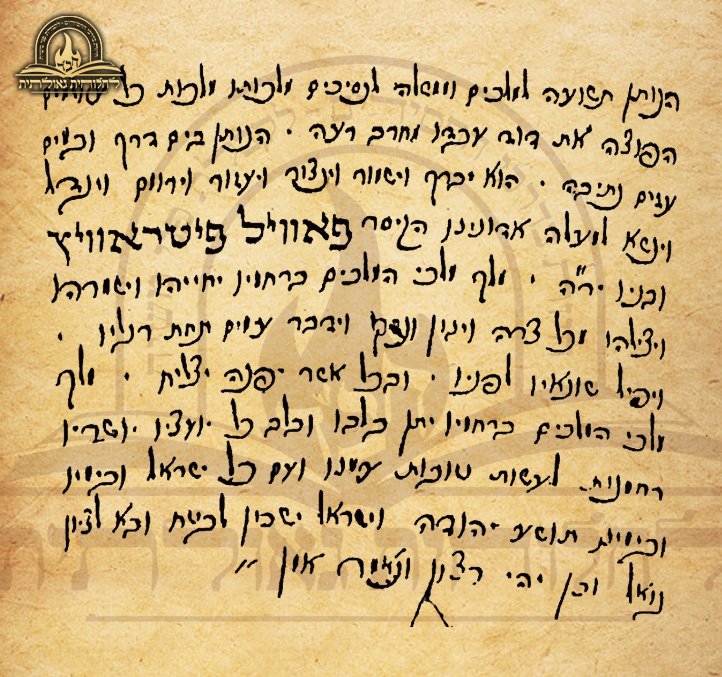 לחלוחית גאולתית
הנותן תשועה למלכים וממשלה לנסיכים מלכותו מלכות כל עולמים
הפוצה את דוד עבדו מחרב רעה . הנותן בים דרך ובמים
עזים נתיבה . הוא יברך וישמור וינצור ויעזור וירומם ויגדל
וינשא למעלה אדונינו הקיסר פאוויל פיטראוויץ
ובניו יר"ה . מלך מלכי המלכים ברחמיו יחייהו וישמרהו
ויצילהו מכל צרה ויגון ונזק וידבר עמים תחת רגליו .
ויפיל שונאיו לפניו . ובכל אשר יפנה יצליח . מלך
מלכי המלכים ברחמיו יתן בלבו ובלב כל יועציו ושריו
רחמנות לעשות טובות עמנו ועם כל ישראל ובימיו
ובימינו תושע יהודה וישראל ישכון לבטח ובא לציון
גואל וכן יהי רצון ונאמר אמן "